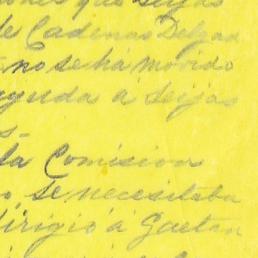 ones que Seijas
de Cadenas Delgad
no se há movido
ayuda a Seijas
s-
la Comision
o se necesitaba
dirigió á Gaetan